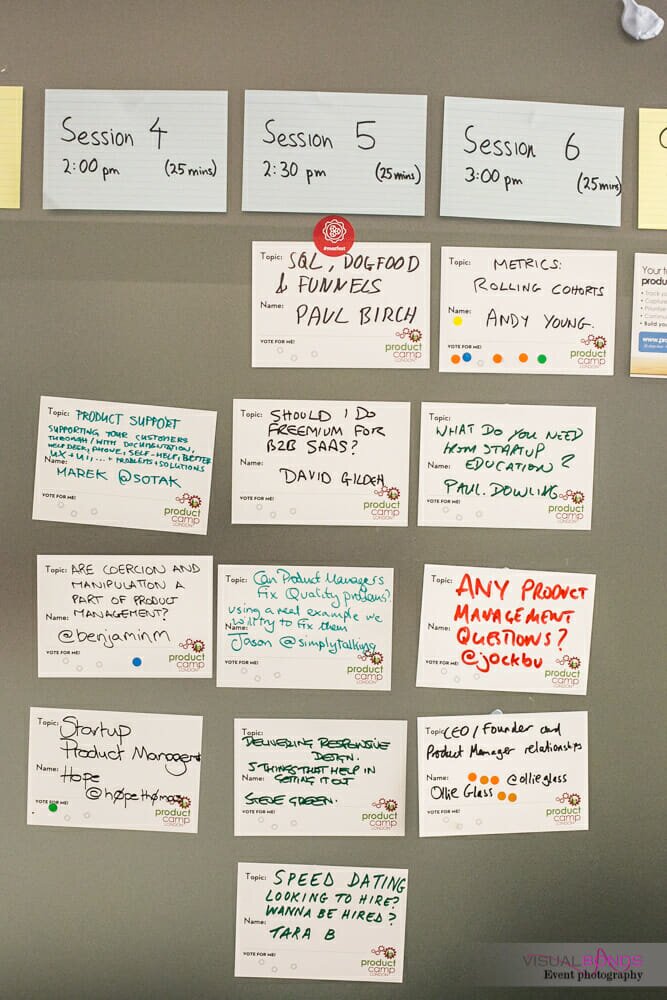 Session 4
2:00 pm (25 mins)
Session 5
2:30 pm (25 mins)
Session 6
3:00 pm (25 mins)
Topic: SQL, DOGFOOD
& FUNNELS
Name: PAUL BIRCH
VOTE FOR ME!
product
camp
LONDON
Topic: METRICS:
ROLLING COHORTS
Name: ANDY YOUNG.
VOTE FOR ME!
product
camp
LONDON
Topic: PRODUCT SUPPORT
SUPPORTING YOUR CUSTOMERS
THROUGH/WITH DOCUMENTATION,
HELPDESK, PHONE, SELF-HELP, BETTER
UX + UI, ... + PROBLEMS + SOLUTIONS
Name: MAREK @SOTAK
VOTE FOR ME!
product
camp
LONDON
Topic: SHOULD I DO
FREEMIUM FOR
B2B SAAS?
Name: DAVID GILDEH
VOTE FOR ME!
product
camp
LONDON
Topic: WHAT DO YOU NEED
FROM STARTUP
EDUCATION?
Name: PAUL. DOWLING
VOTE FOR ME!
product
camp
LONDON
Topic: ARE COERCION AND
MANIPULATION A
PART OF PRODUCT
MANAGEMENT?
Name: @benjaminm
VOTE FOR ME!
product
camp
LONDON
Topic: Can Product Managers
fix Quality problems?
using a real example we
will try to fix them
Name: Jason @simplytalking
VOTE FOR ME!
product
camp
LONDON
Topic: ANY PRODUCT
MANAGEMENT
QUESTIONS?
Name: @jockbu
VOTE FOR ME!
product
camp
LONDON
Topic: Startup
Product Managers
Name: Hope
@høpethømas
VOTE FOR ME!
product
camp
LONDON
Topic: DELIVERING RESPONSIVE
DESIGN.
5 THINGS THAT HELP IN
GETTING IT OUT
Name: STEVE GREEN.
VOTE FOR ME!
product
camp
LONDON
Topic: CEO / Founder and
Product Manager relationships
Name: @ollieglass
Ollie Glass
VOTE FOR ME!
product
camp
LONDON
Topic: SPEED DATING
LOOKING TO HIRE?
WANNA BE HIRED?
Name: TARA B
VOTE FOR ME!
product
camp
LONDON
VISUALBONDS
Event photography